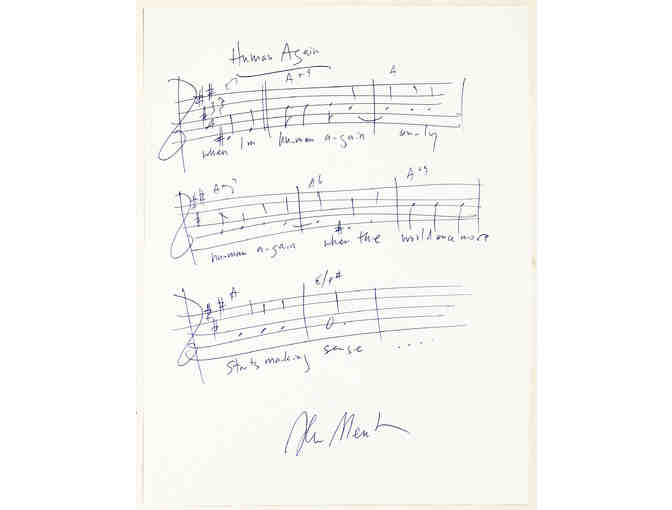 Human Again
E7 A+9 A
when I'm human a-gain on-ly
Amaj7 A6 A+9
human a-gain when the world once more
A E/F#
starts making sense ....
Alan Menken